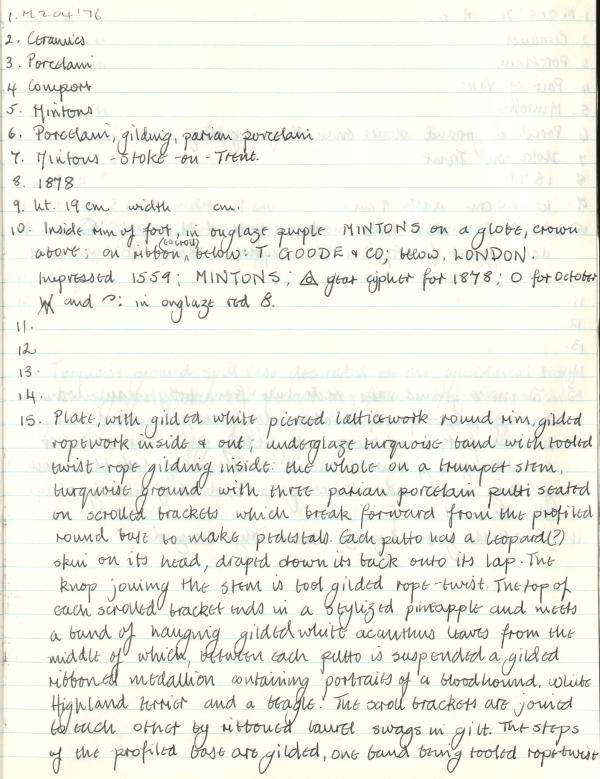 1. M204'76
2. Ceramics
3. Porcelain
4 Comport
5. Mintons
6. Porcelain, gilding, parian porcelain
7. Mintons - Stoke - on - Trent.
8. 1878
9. ht. 19 cm width cm.
10. Inside rim of foot, in onglaze purple MINTONS on a globe, crown
above; on ribbon, (scroll) below: T. GOODE & CO; below, LONDON.
Impressed 1559; MINTONS; year cypher for 1878; O for October
and : in onglaze red 8.
11.
12
13.
14.
15. Plate, with gilded white pierced latticework round rim, gilded
ropework inside & out; underglaze turquoise band with tooled
twist-rope gilding inside: the whole on a trumpet stem,
turquoise ground with three parian porcelain putti seated
on scrolled brackets which break forward from the profiled
round base to make pedestals. Each putto has a leopard(?)
skin on its head, draped down its back onto its lap. The
knop joining the stem is tool gilded rope-twist. The top of
each scrolled bracket ends in a stylized pineapple and meets
a band of hanging gilded white acanthus leaves from the
middle of which, between each putto is suspended a gilded
ribboned medallion containing portraits of a bloodhound, white
Highland terrier and a beagle. The scroll brackets are joined
to each other by ribboned laurel swags in gilt. The steps
of the profiled base are gilded, one band being tooled ropetwist